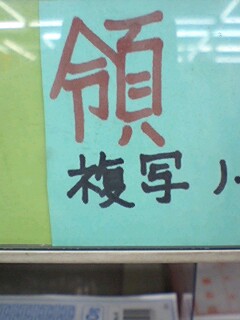 領
複写